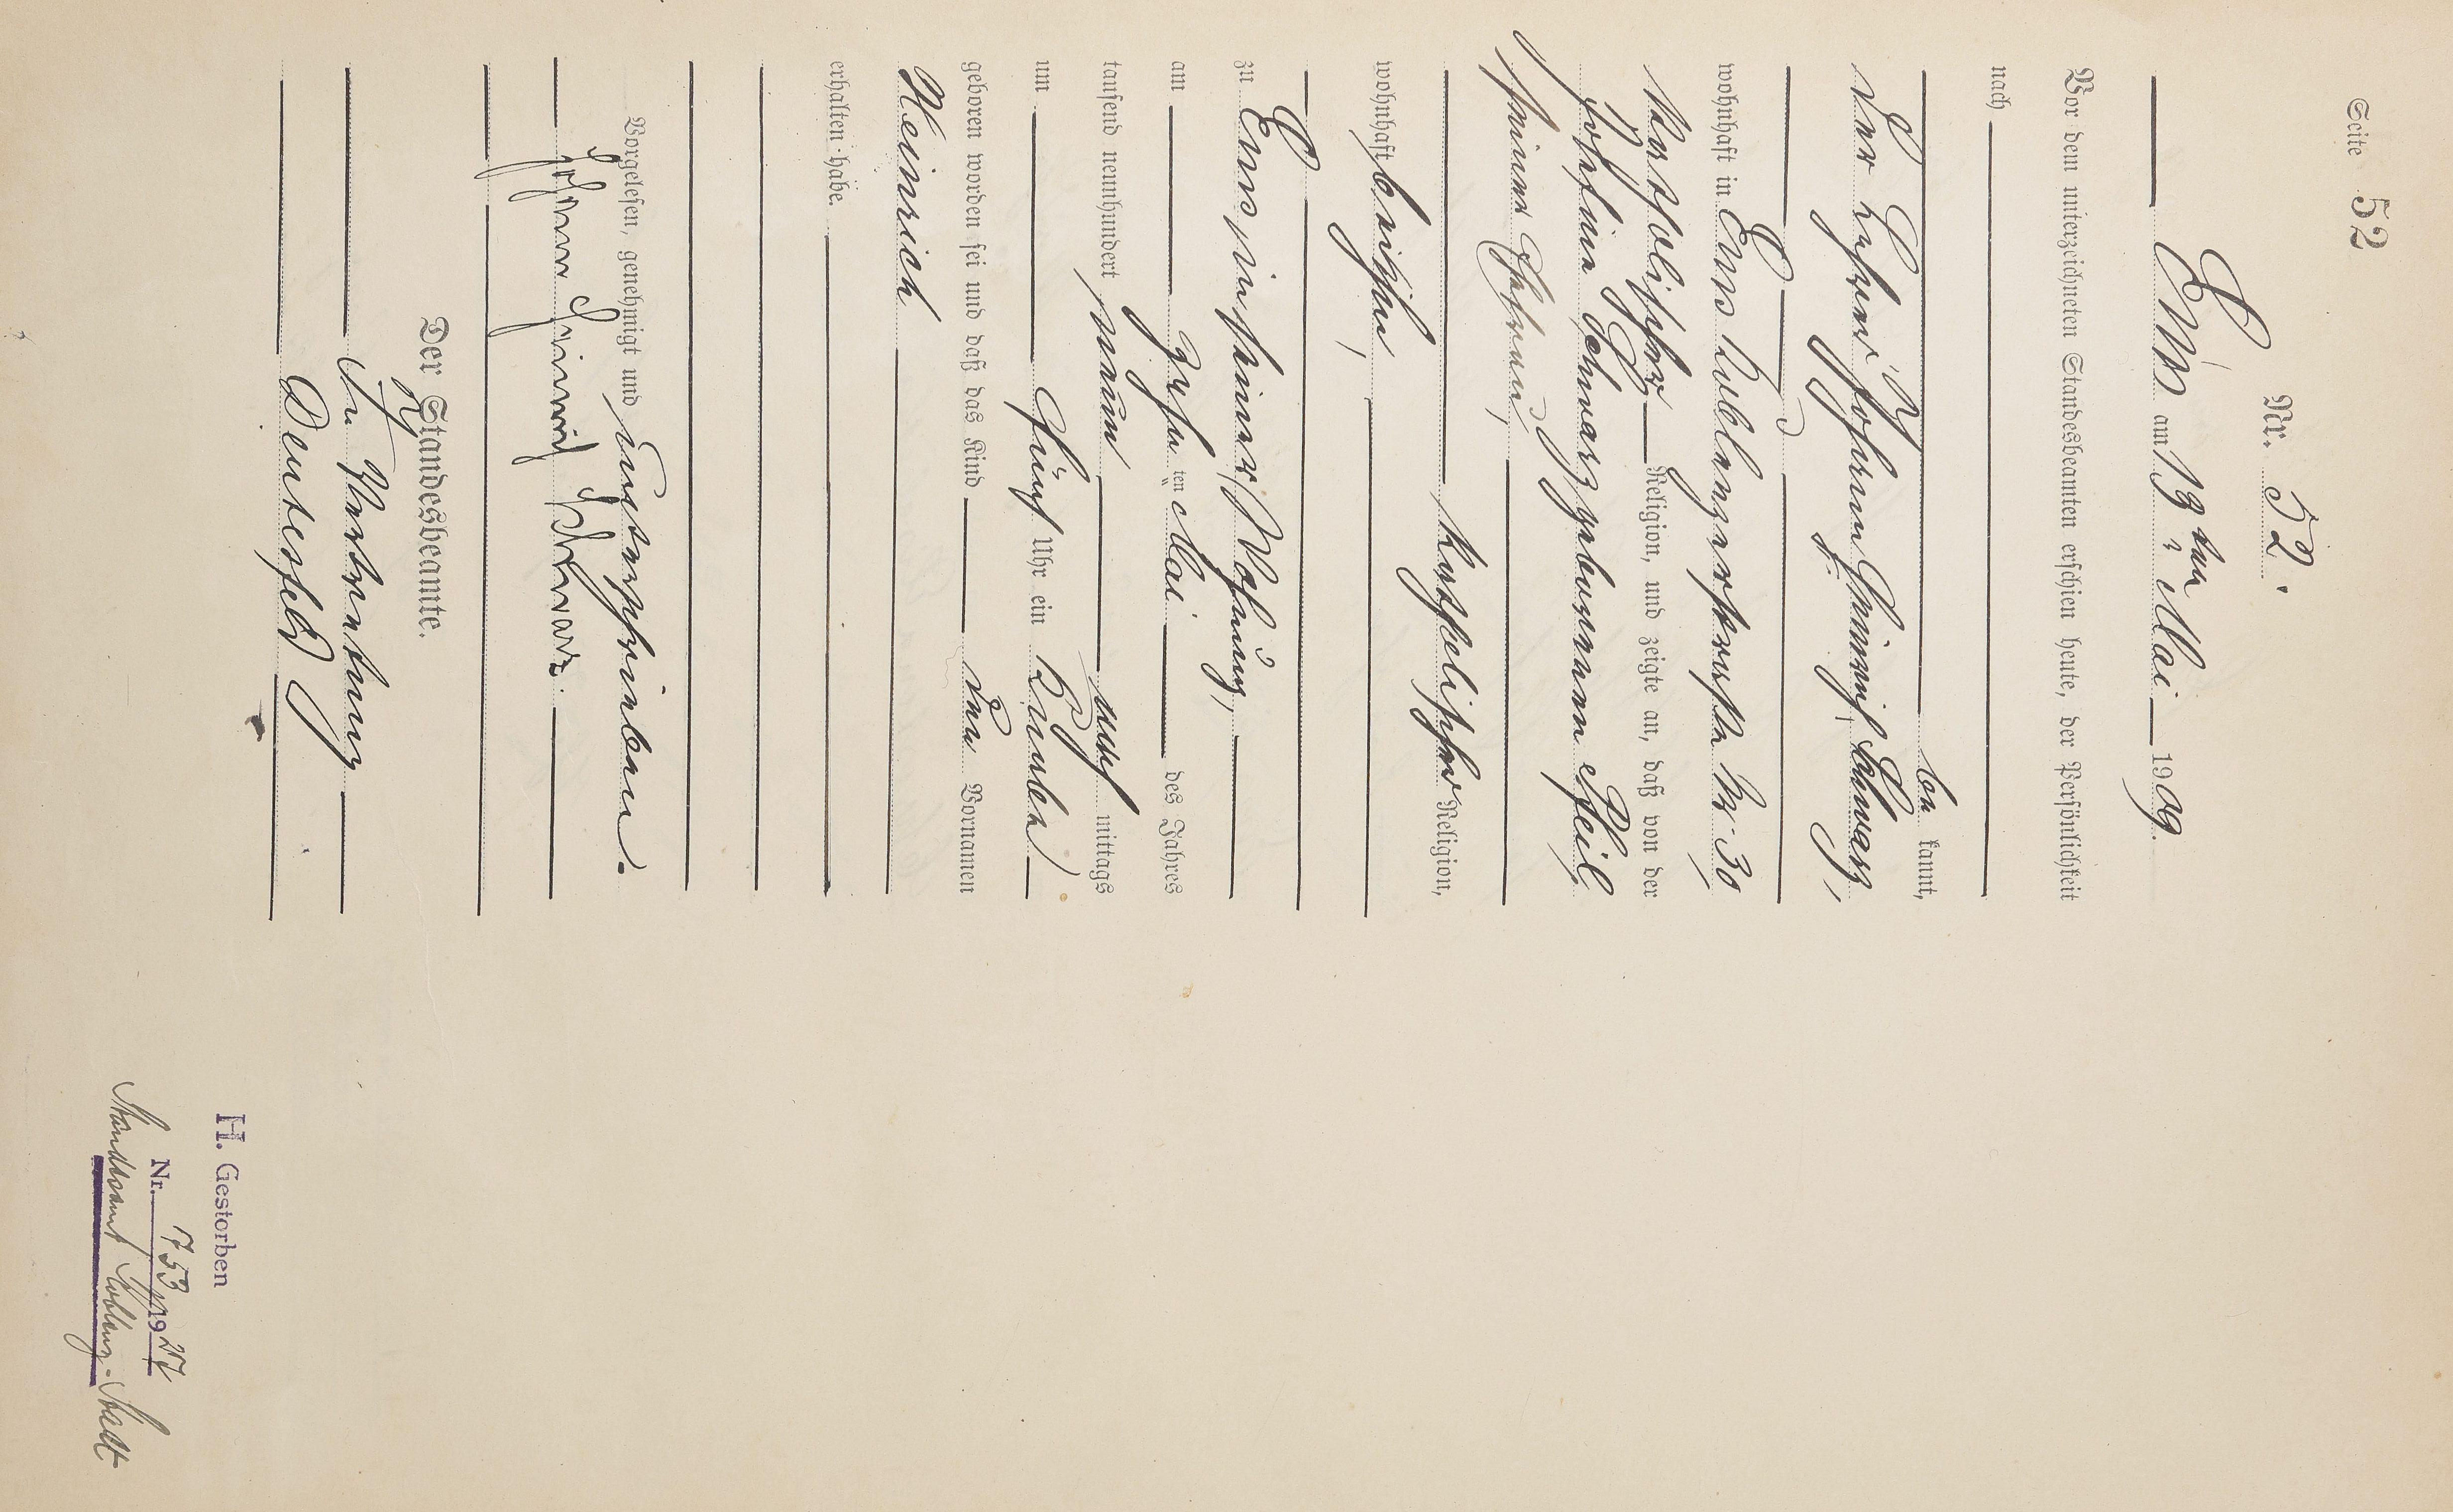 Seite 52
Nr. 52.
Ems am 13ten Mai 1909.
Vor dem unterzeichneten Standesbeamten erschien heute, der Persönlichkeit
nach
be kannt,
der Lehrer Johann Heinrich Schwarz,
wohnhaft in Ems Coblenzerstraße Nr. 30
katholischer Religion, und zeigte an, daß von der
Josefine Schwarz geborenen Pfeil,
seiner Ehefrau,
katholischer Religion,
wohnhaft bei ihm,
zu Ems in seiner Wohnung,
am zehn ten Mai des Jahres
tausend neunhundert neun nach mittags
um fünf Uhr ein Knabe
geboren worden sei und daß das Kind den Vornamen
Heinrich
erhalten habe.
Vorgelesen, genehmigt und unterschrieben.
Johann Heinrich Schwarz.
Der Standesbeamte.
In Vertretung
H. Gestorben
Nr. 753/1927
Standesamt Koblenz-Stadt